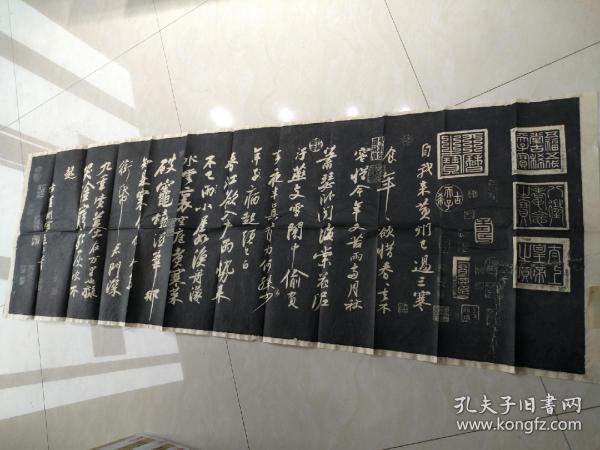 八徵耄念之寶
太上皇帝之寶
自我來黃州已過三寒
食年〻欲惜春〻去不
容惜今年又苦雨兩月秋
蕭瑟卧聞海棠花泥
汙燕支雪闇中偷負
去夜半真有力何殊少
年子病起頭已白
春江欲入戶雨勢來
不已雨小屋如漁舟濛〻
水雲裏空庖煮寒菜
破竈燒濕葦那
知是寒食但見烏
銜帋君門深
九重墳墓在万里也擬
哭塗窮死灰吹不
起
右黃州寒食二首
孔夫子旧书网
www.kongfz.com